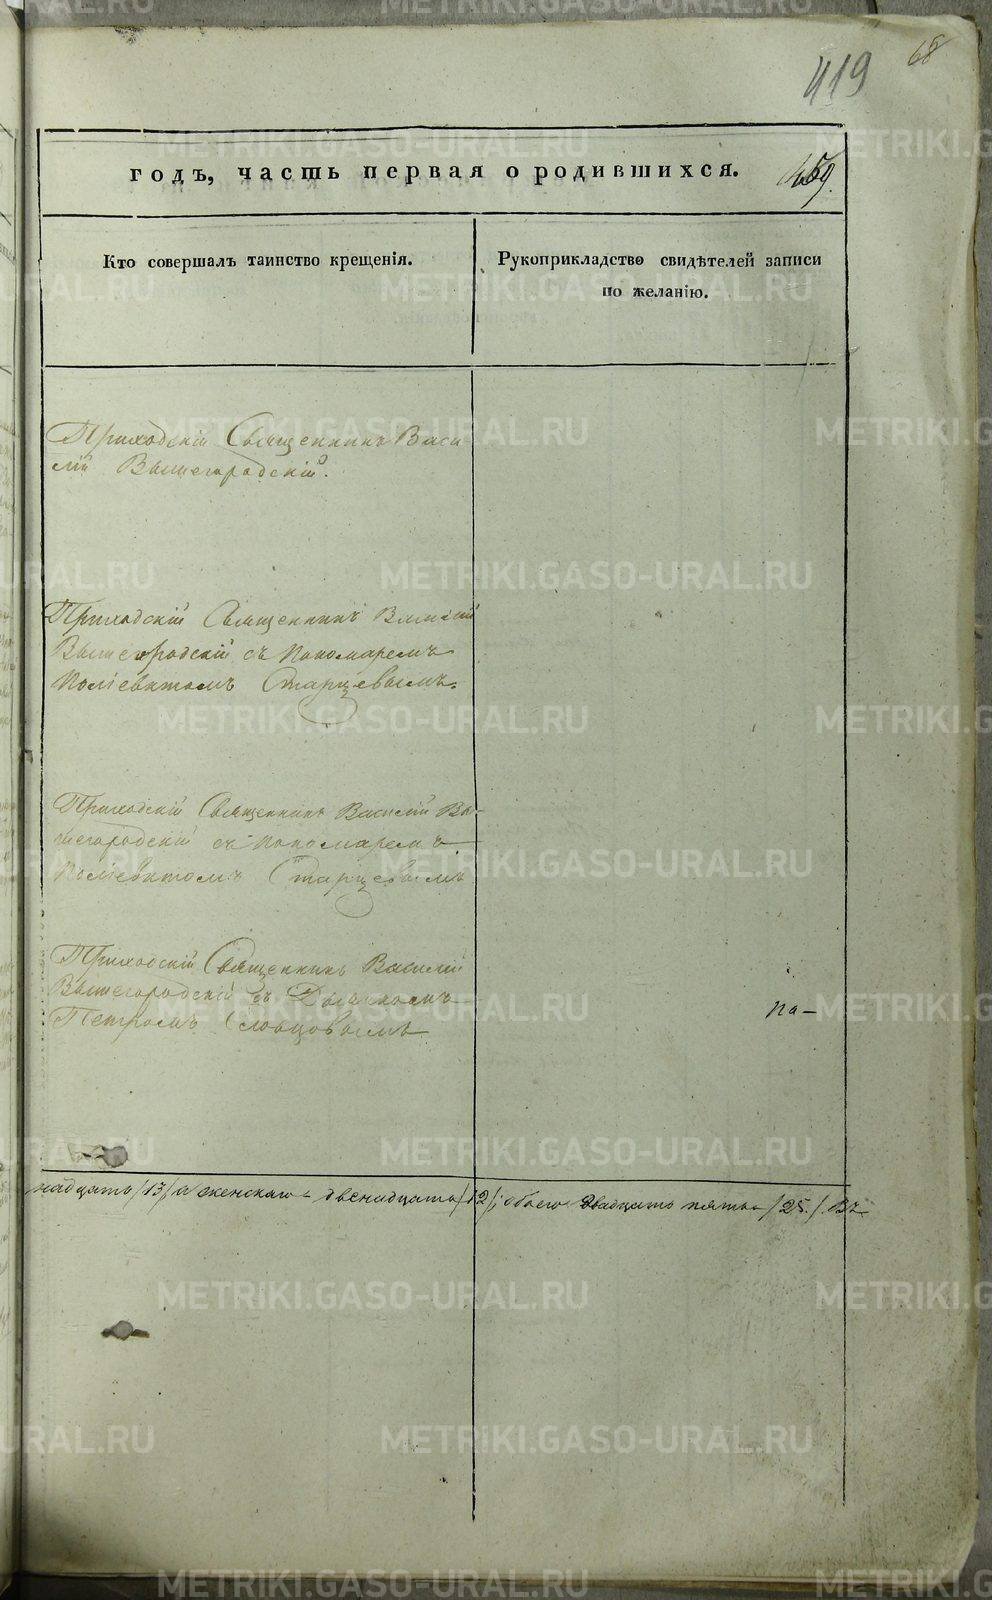 68
419
годъ, часть первая о родившихся.
Кто совершалъ таинство крещенія.
Рукоприкладство свидѣтелей записи
по желанію.
Приходскій Священникъ Васи
лій Вышегородскій.
Приходскій Священникъ Василій
Вышегородскій съ пономаремъ
Поліевктомъ Старцевымъ.
Приходскій Священникъ Василій Вы-
шегородскій съ пономаремъ
Поліевктомъ Старцевымъ
Приходскій Священникъ Василій
Вышегородскій съ Дьячкомъ
Петромъ Словцовымъ
па-
надцать /13/, а женскаго двенадцать /12/; обоего двадцать пять /25./. Въ
METRIKI.GASO-URAL.RU